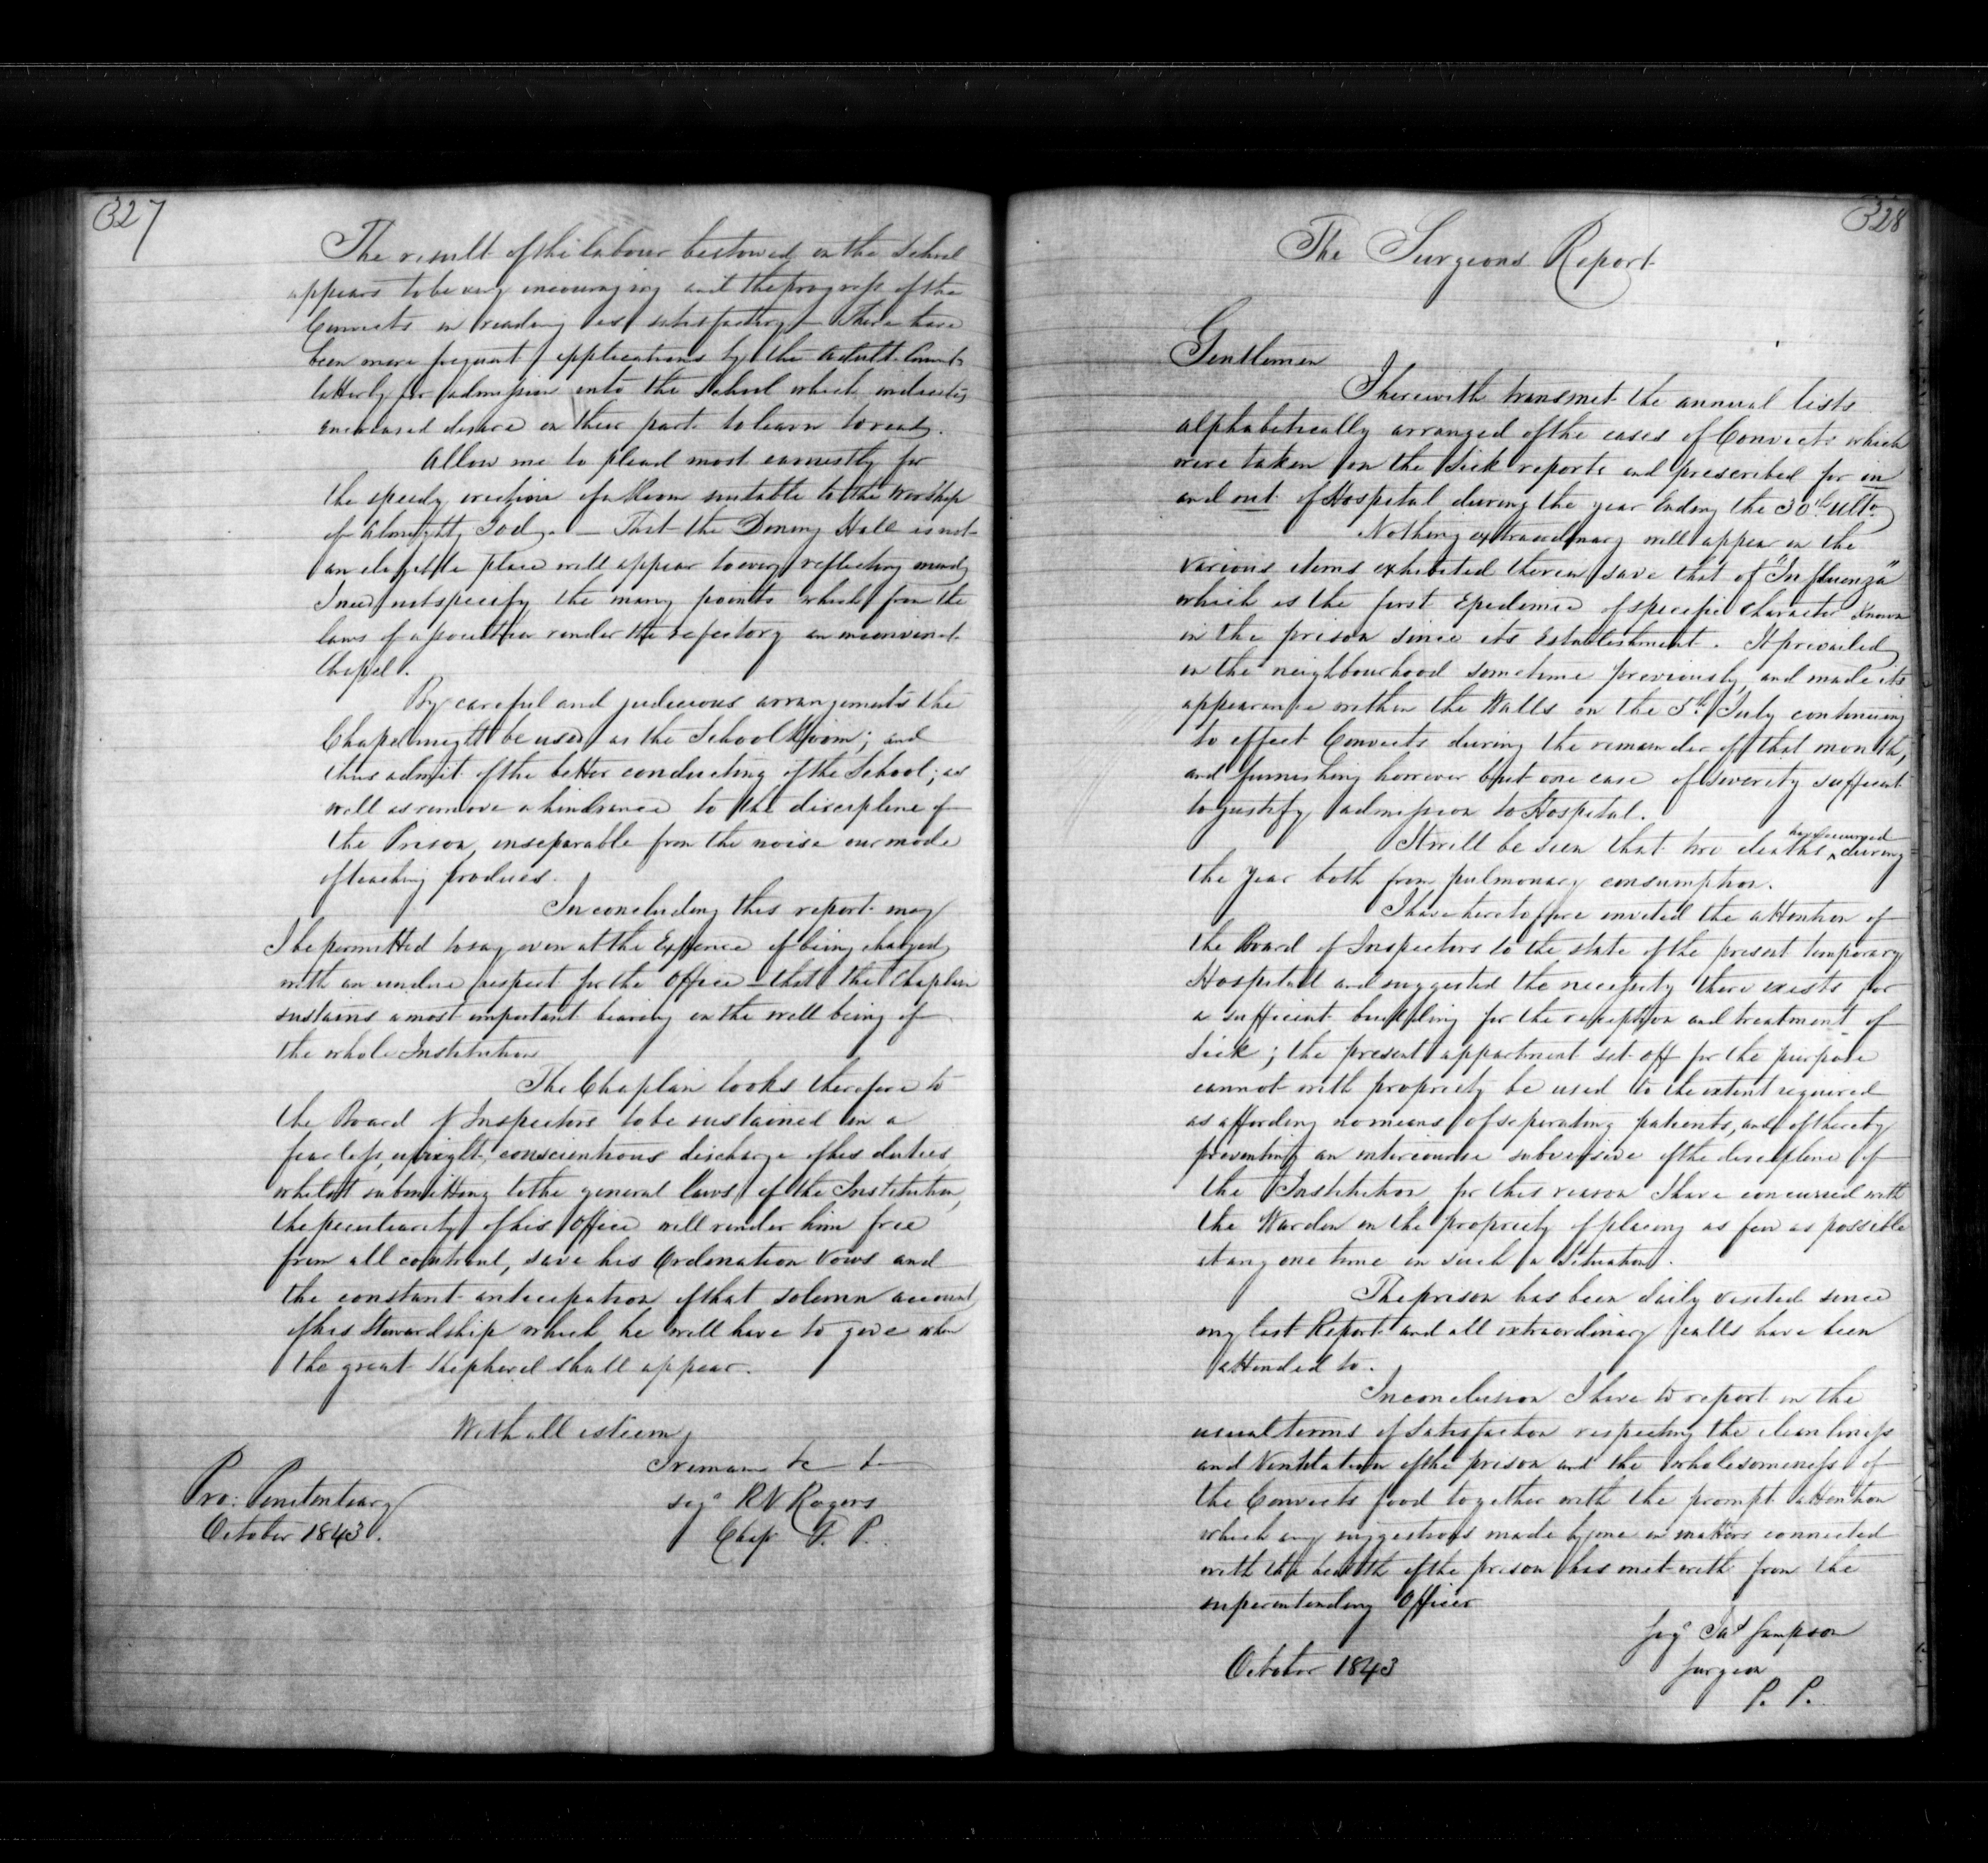 327
The result of the labour bestowed on the School
appears to be very encouraging and the progress of the
Convicts in reading is satisfactory — there have
been more frequent applications by the adult Convicts
latterly for admission into the School which indicates
increased desire on their part to learn to read.
Allow me to plead most earnestly for
the speedy erection of a Room suitable to the Worship
of Almighty God. — That the Dining Hall is not
an eligible place will appear to every reflecting mind
I need not specify the many points which from the
laws of association render the refectory an inconvenient
Chapel.
By careful and judicious arrangements the
Chapel might be used as the School Room; and
thus admit of the better conducting of the School; as
well as remove a hindrance to the discipline of
the Prison, inseparable from the noise our mode
of teaching produces.
In concluding this report may
I be permitted to say even at the Expence of being charged
with an undue respect for the Office — that the Chaplain
sustains a most important bearing on the well being of
the whole Institution
The Chaplain looks therefore to
the Board of Inspectors to be sustained in a
fearless, upright, conscientious discharge of his duties
whilst submitting to the general laws of the Institution,
the peculiarity of his Office will render him free
from all controul, save his Ordination Vows and
the constant anticipation of that solemn account
of his Stewardship which he will have to give when
the great Shepherd shall appear.
With all esteem
I remain &c &c
Pro: Penitentiary
sigd RV Rogers
October 1843.
Chap P. P.
328
The Surgeons Report
Gentlemen
I herewith transmit the annual lists
alphabetically arranged of the cases of Convicts which
were taken on the Sick reports and prescribed for in
and out of Hospital during the year Ending the 30th Ulto
Nothing extraordinary will appear in the
various items exhibited therein save that of "Influenza"
which is the first Epidemic of specific character known
in the prison since its Establishment. It prevailed
in the neighbourhood sometime previously, and made its
appearance within the Walls on the 5th July continuing
to effect Convicts during the remainder of that month,
and furnishing however but one case of severity sufficient
to justify admission to Hospital.
It will be seen that two deaths have occurred during
the year both from pulmonary consumption.
I have heretoffore invited the attention of
the Board of Inspectors to the state of the present temporary
Hospitall and suggested the necessity there exists for
a sufficient building for the reception and treatment of
Sick; the present appartment set off for the purpose
cannot with propriety be used to the extent required
as affording no means of separating patients, and of thereby
preventing an intercourse subversive of the discipline of
the Institution for this reason I have concurred with
the Warden in the propriety of placing as few as possible
at any one time in such a Situation.
The prison has been daily visited since
my last Report and all extraordinary calls have been
attended to.
In conclusion I have to report in the
usual terms of Satisfaction respecting the cleanliness
and Ventilation of the prison and the wholesomeness of
the Convicts food together with the prompt attention
which any suggestions made by me in matters connected
with the health of the prison has met with from the
superintending Officer
Sigd Jas Sampson
October 1843
Surgeon
P. P.